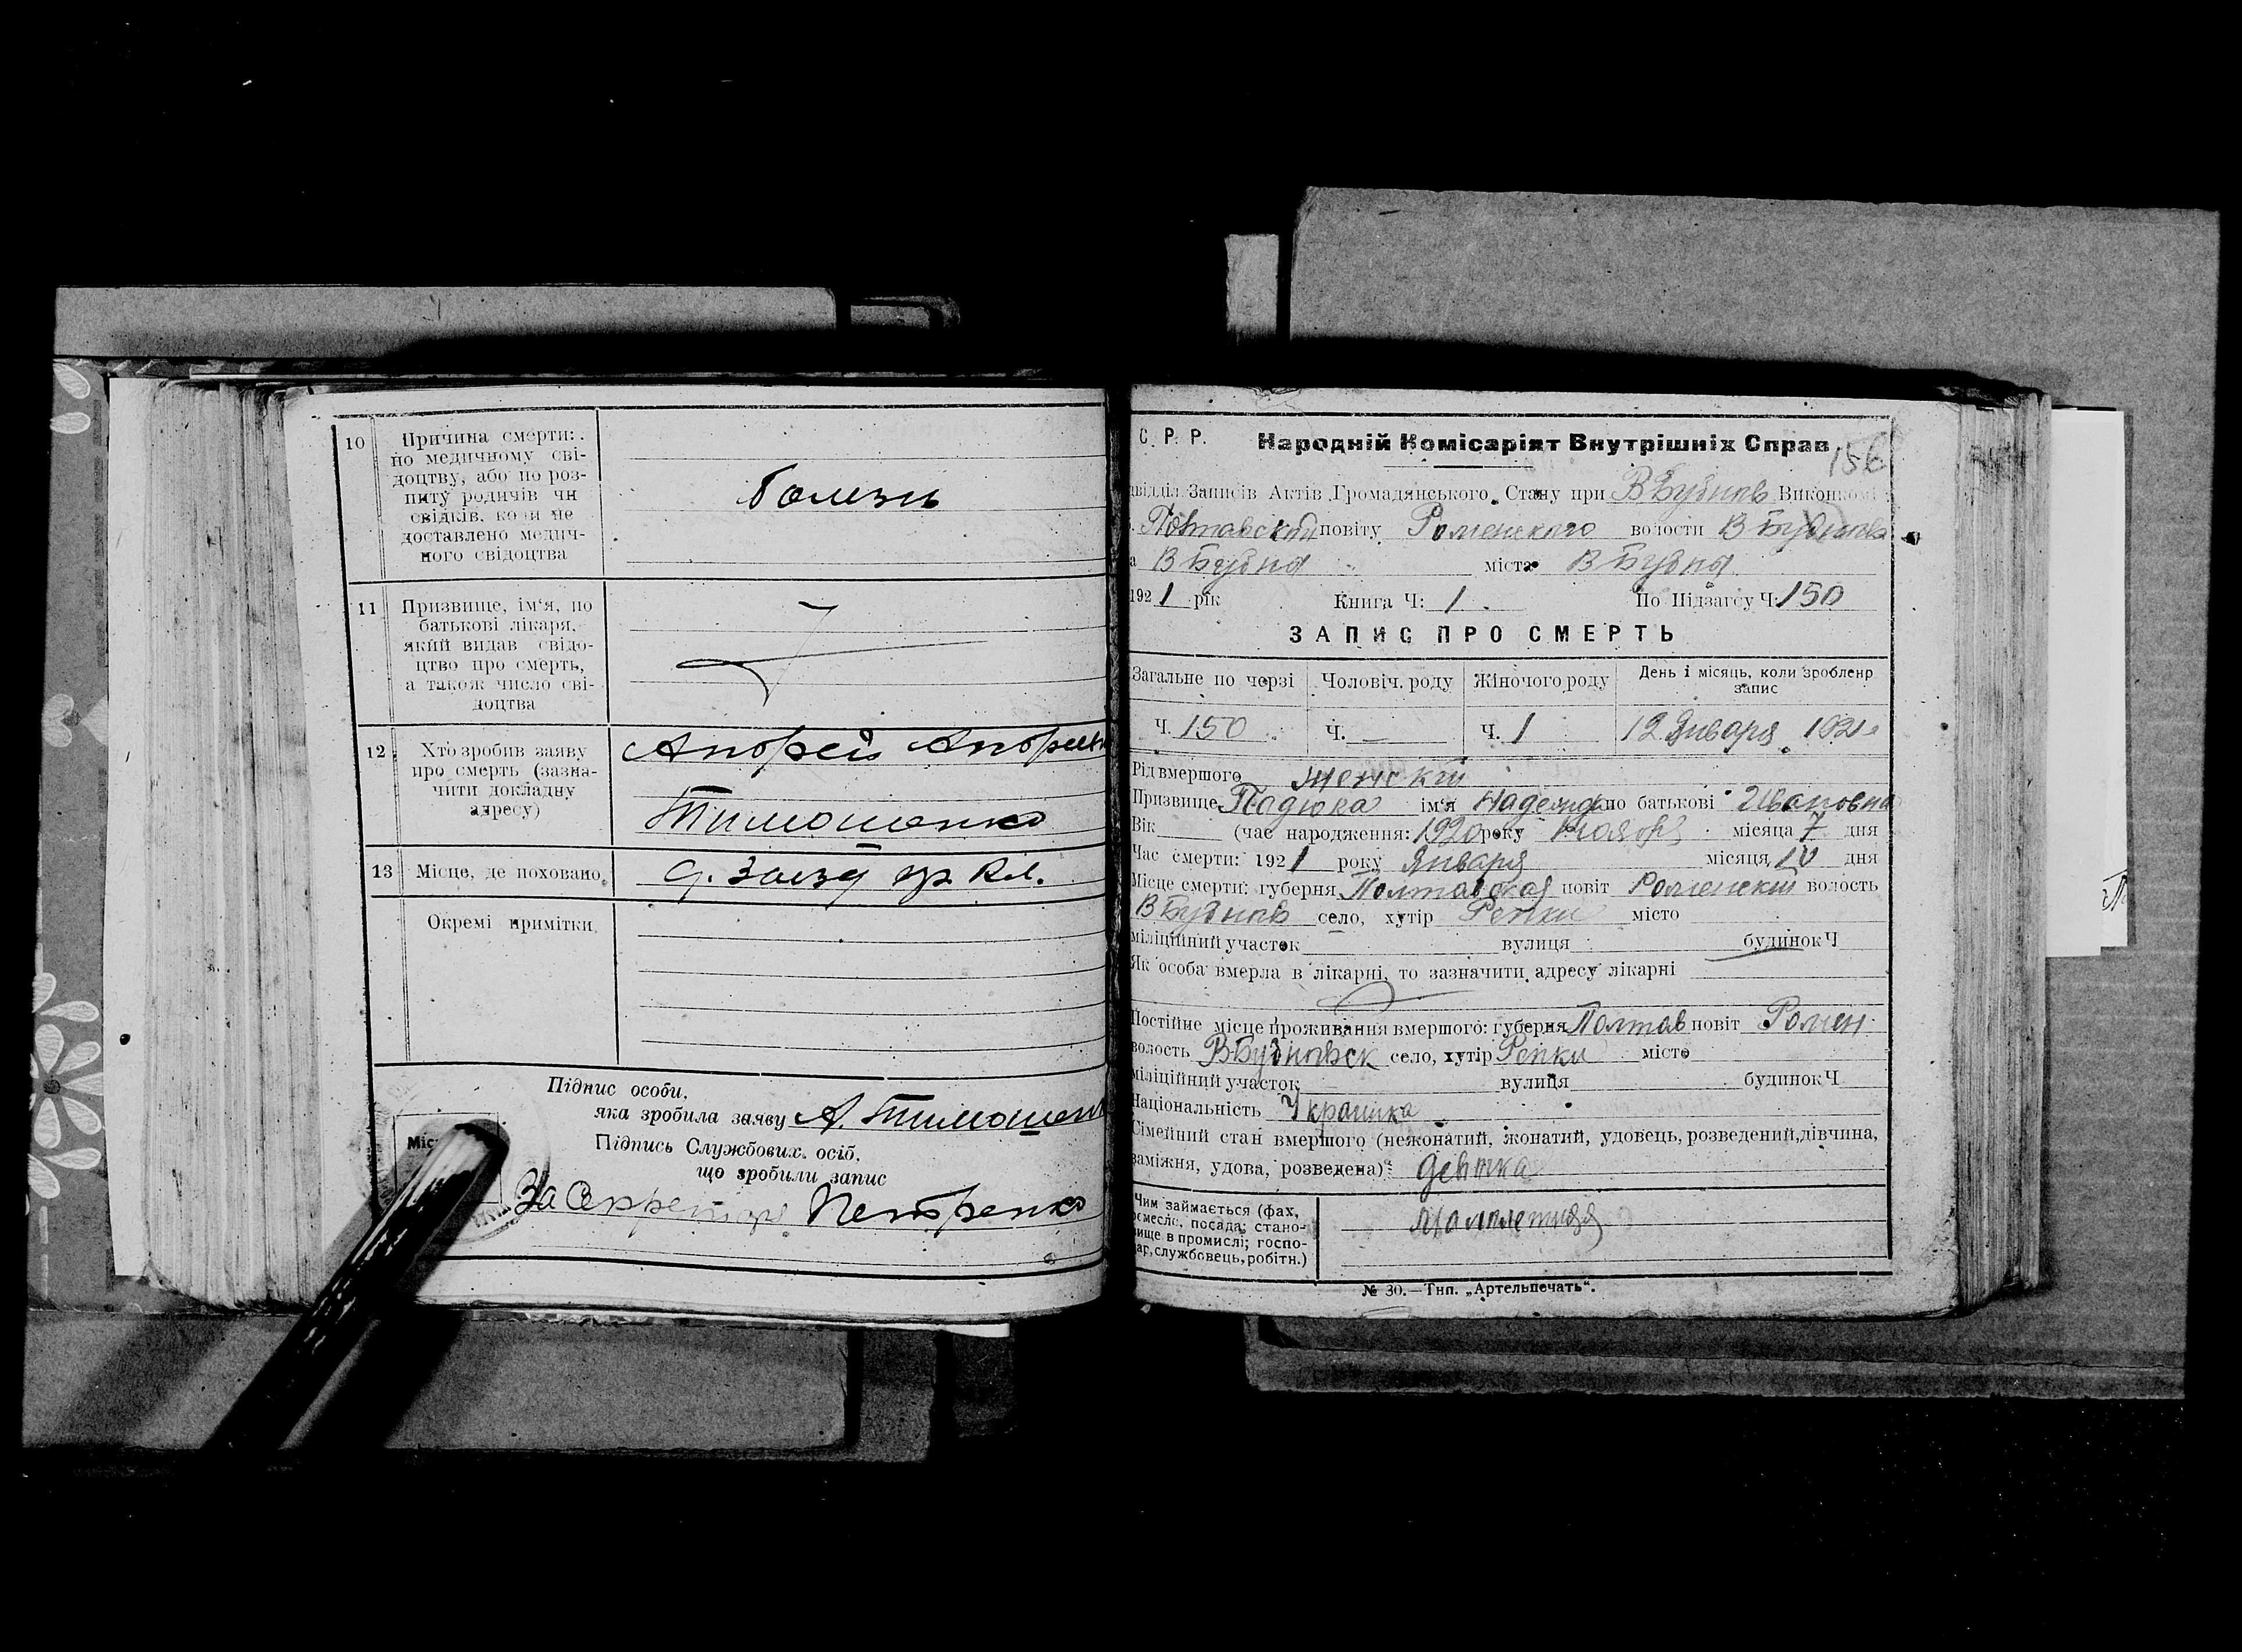 10 Причина смерти:
по медичному сві-
доцтву, або по роз-
питу родичів чи
свідків, коли не
доставлено медич-
ного свідоцтва
болезнь
11 Призвище, ім'я, по
батькові лікаря,
який видав свідо-
цтво про смерть,
а також число сві-
доцтва
12 Хто зробив заяву
про смерть (зазна-
чити докладну
адресу)
Андрей Андреев
Тимошенко
13 Місце, де поховано
Окремі примітки
Підпис особи,
яка зробила заяву А. Тимошен
Підпись Службових осіб,
що зробили запис
За Секретаря Петренко
С. Р. Р. Народній Комісаріят Внутрішніх Справ
156
відділ Записів Актів Громадянського Стану при ВБубнов Виконкомі
Полтавской повіту Роменского волости В Бубновс
а В Бубна міста В Бубна
1921 рік Книга Ч: 1. По Підзагсу Ч: 150
ЗАПИС ПРО СМЕРТЬ
Загальне по черзі Чоловіч. роду Жіночого роду День і місяць, коли зроблено запис
Ч. 150 Ч. — Ч. 1 12 Января 1921
Рід вмершого женский
Призвище Падюка ім'я Надежда по батькові Ивановна
Вік (час народження: 1920 року ноября місяца 7 дня
Час смерти: 1921 року Января місяця 10 дня
Місце смерти: губерня Полтавская повіт Роменский волость
ВБубнов село, хутір Репки місто
міліційний участок вулиця будинок Ч
Як особа вмерла в лікарні, то зазначити адресу лікарні
Постійне місце проживання вмершого: губерня Полтав повіт Ромен
волость ВБубновск село, хутір Репки місто
міліційний участок вулиця будинок Ч
Національність Украинка
Сімейний стан вмершого (нежонатий, жонатий, удовець, розведений, дівчина,
заміжня, удова, розведена): девитка
Чим займається (фах,
ремесло, посада; стано-
вище в промислі; госпо-
дар, службовець, робітн.)
Малолетняя
№ 30.—Тип. „Артельпечать“.